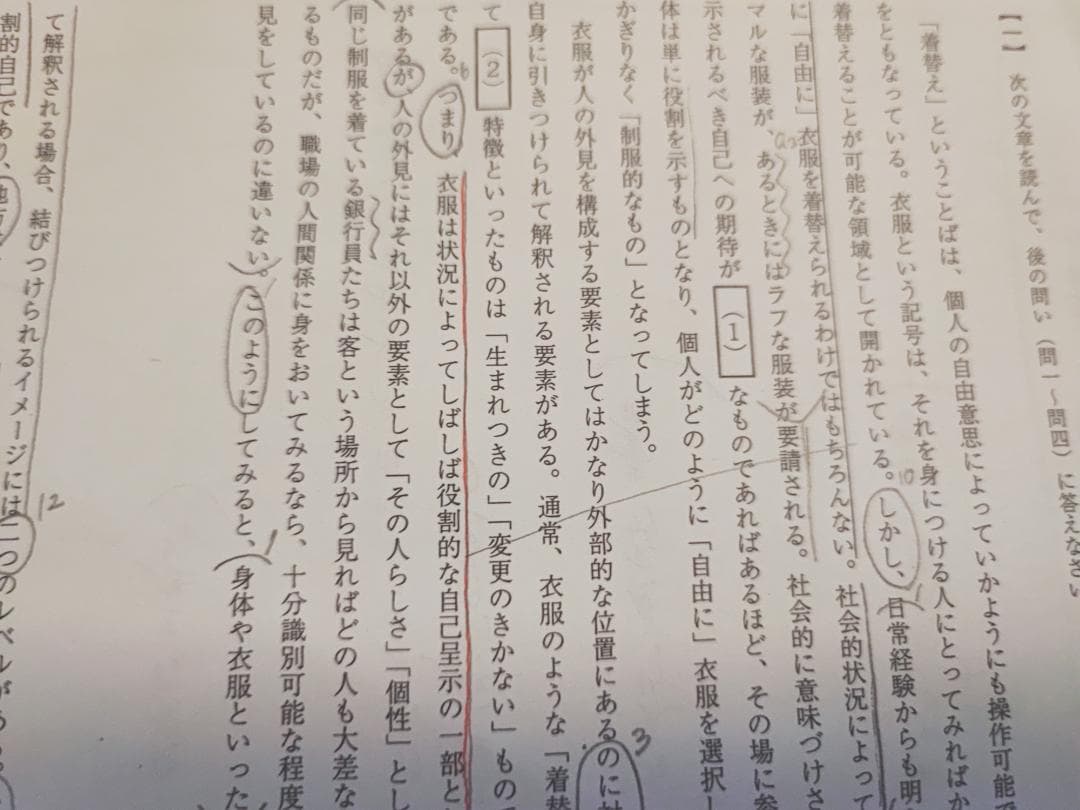 【一】 次の文章を読んで、後の問い（問一～問四）に答えなさい
「着替え」ということばは、個人の自由意思によっていかようにも操作可能
をともなっている。衣服という記号は、それを身につける人にとってみればか
着替えることが可能な領域として開かれている。しかし、日常経験からも明
10
に「自由に」衣服を着替えられるわけではもちろんない。社会的状況によって
マルな服装が、あるときにはラフな服装が要請される。社会的に意味づけさ
示されるべき自己への期待が（1）なものであればあるほど、その場に参
体は単に役割を示すものとなり、個人がどのように「自由に」衣服を選択し
かぎりなく「制服的なもの」となってしまう。
衣服が人の外見を構成する要素としてはかなり外部的な位置にあるのに対
3
自身に引きつけられて解釈される要素がある。通常、衣服のような「着替
て（2）特徴といったものは「生まれつきの」「変更のきかない」もので
である。つまり、衣服は状況によってしばしば役割的な自己呈示の一部と
b
があるが、人の外見にはそれ以外の要素として「その人らしさ」「個性」とし
同じ制服を着ている銀行員たちは客という場所から見ればどの人も大差な
るものだが、職場の人間関係に身をおいてみるなら、十分識別可能な程度
見をしているのに違いない。このようにしてみると、身体や衣服といった
て解釈される場合、結びつけられるイメージには二つのレベルがある。
12
割的自己であり、他方